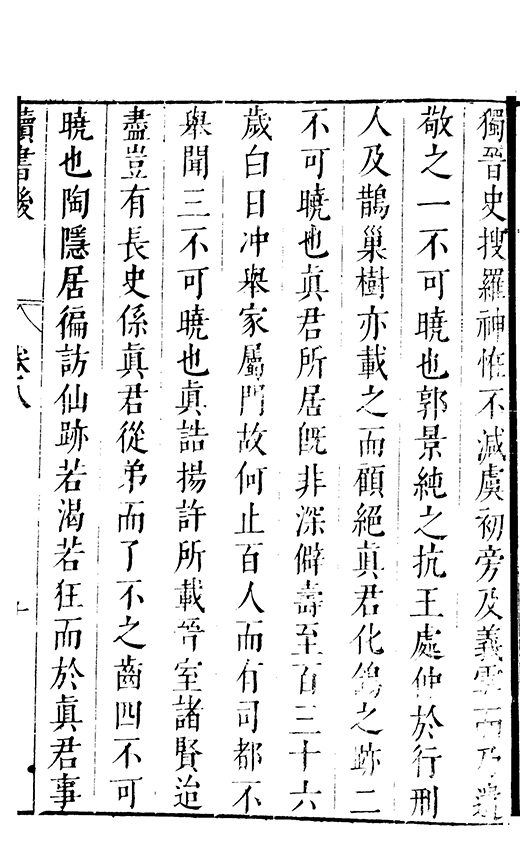 獨晉史搜羅神恠不減虞初旁及義雲而乃遺
敬之一不可曉也郭景純之抗王處仲於行刑
人及鵲巢樹亦載之而顧絕眞君化鴿之跡二
不可曉也眞君所居旣非深僻壽至百三十六
歲白日冲舉家屬門故何止百人而有司都不
舉聞三不可曉也眞誥揚許所載晉室諸賢迨
盡豈有長史係眞君從弟而了不之齒四不可
曉也陶隱居徧訪仙跡若渴若狂而於眞君事
讀書後
卷八
十